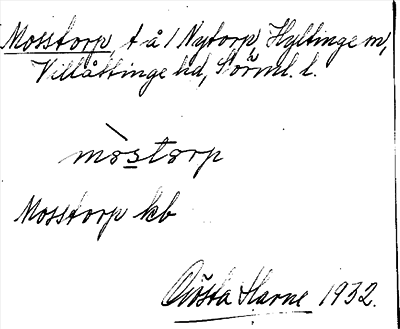 Mosstorp, t å 1 Nytorp, Hyltinge sn,
Villåttinge hd, Sörml. l.
mòstorp
Mosstorp kb
Gösta Harne 1932.